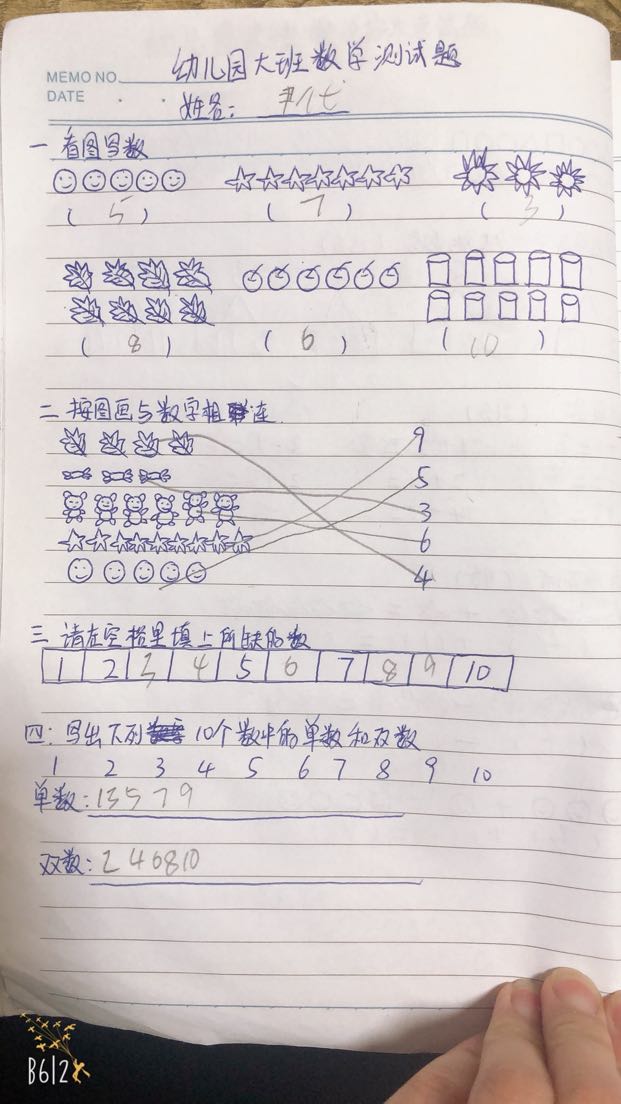 幼儿园大班数学测试题
MEMO NO.
DATE
姓名:
一 看图写数
( 5 ) ( 7 ) ( 3 )
( 8 ) ( 6 ) ( 10 )
二 按图画与数字相连
9
5
3
6
4
三 请在空格里填上所缺的数
1 2 3 4 5 6 7 8 9 10
四: 写出下列 10个数中的单数和双数
1 2 3 4 5 6 7 8 9 10
单数: 1 3 5 7 9
双数: 2 4 6 8 10
B612